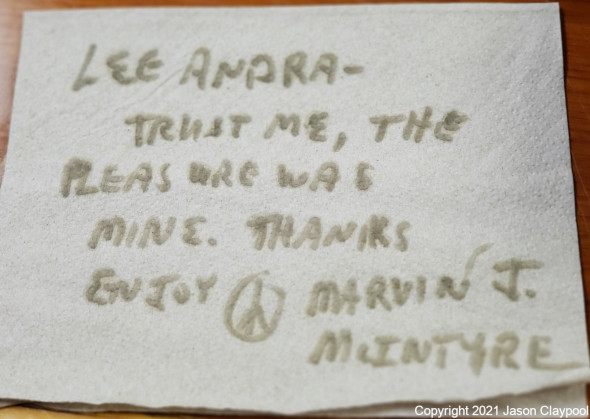 LEE ANDRA-
TRUST ME, THE
PLEASURE WAS
MINE. THANKS
ENJOY ☮ MARVIN J.
MCINTYRE
Copyright 2021 Jason Claypool